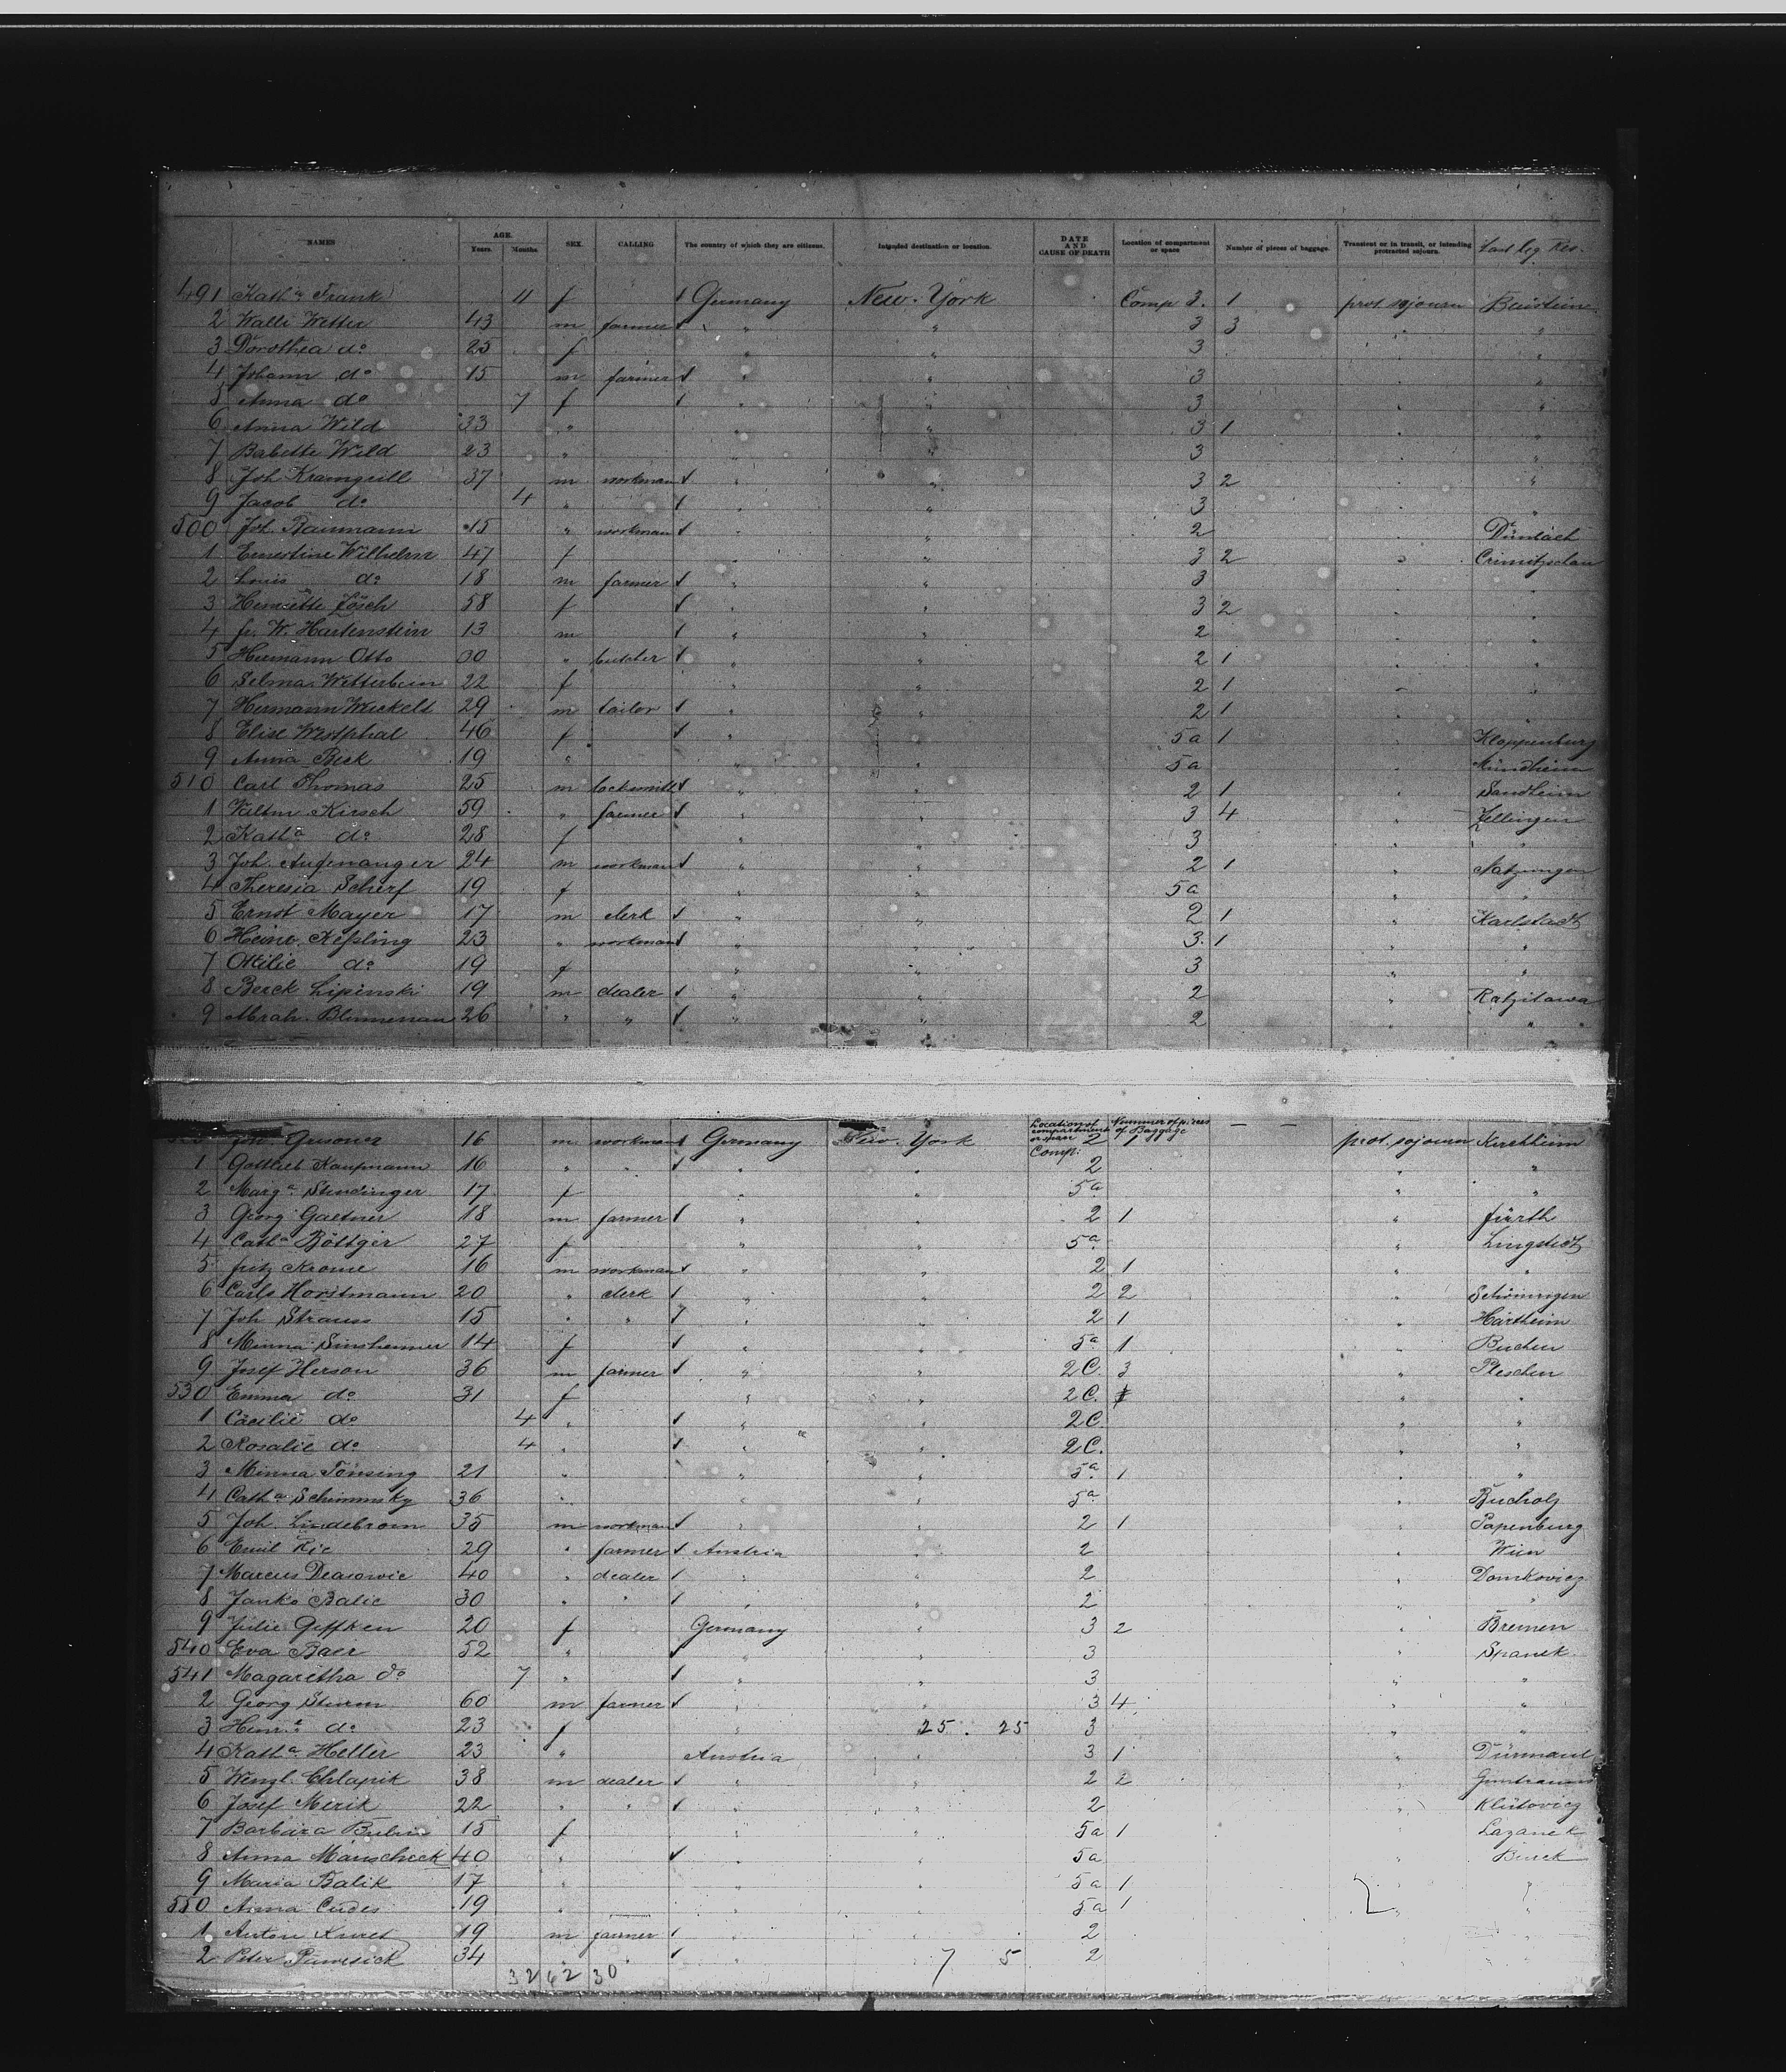 NAMES AGE. Years. Months. SEX. CALLING The country of which they are citizens. Intended destination or location. DATE AND CAUSE OF DEATH Location of compartment or space Number of pieces of baggage. Transient or in transit, or intending protracted sojourn. Last leg. Res.
491 Kath.a Frank 11 f Germany New-York Comp 3. 1 prot. sojourn
2 Walli Wetter 43 m farmer " " 3 3 " "
3 Dorothea do 25 f " " 3 " "
4 Johann do 15 m farmer " " 3 " "
5 Anna do 7 f " " 3 " "
6 Anna Wild 33 " " " 3 1 " "
7 Babette Wild 23 " " " 3 " "
8 Joh. Kramgrill 37 m workman " " 3 2 " "
9 Jacob do 4 " " " 3 " "
500 Joh. Baumann 15 " workman " " 2 "
1 Ernestine Wilhelm 47 f " " 3 2 " Crimitzschau
2 Louis do 18 m farmer " " 3 " "
3 Henriette Lösch 58 f " " 3 2 " "
4 fr. W. Hartenstein 13 m " " 2 " "
5 Hermann Otto 30 " butcher " " 2 1 " "
6 Selma Wetterbein 22 f " " 2 1 " "
7 Hermann Weickelt 29 m tailor " " 2 1 " "
8 Elise Westphal 46 f " " 5a 1 " Kloppenburg
9 Anna Beck 19 " " " 5a " Mündheim
510 Carl Thomas 25 m locksmith " " 2 1 " Sandheim
1 Valtin Kirsch 59 " farmer " " 3 4 " Zellingen
2 Kath.a do 28 f " " 3 " "
3 Joh. Aufenanger 24 m workman " " 2 1 " Natzungen
4 Theresia Scherf 19 f " " 5a " "
5 Ernst Mayer 17 m clerk " " 2 1 " Karlstadt
6 Heinr. Keßling 23 " workman " " 3. 1 " "
7 Ottilie do 19 f " " 3 " "
8 Berck Lipinski 19 m dealer " " 2 " Ratzitawa
9 Abrah. Blumenau 26 " " " " 2 " "
Location of compartment or space Comp: Nummer of pieces of Baggage
16 m workman Germany New-York 2 1 — — prot. sojourn Kirchheim
1 Gottlieb Kaufmann 16 " " " " 2 " "
2 Marg.a Stendinger 17 f " " 5a " "
3 Georg Gaetner 18 m farmer " " 2 1 " fürth
4 Cath.a Böttger 27 f " " 5a " Lingstedt
5 fritz Krome 16 m workman " " 2 1 " "
6 Carls Horstmann 20 " clerk " " 2 2 " Schöningen
7 Joh Strauss 15 " " " " 2 1 " Hartheim
8 Minna Sinsheimer 14 f " " 5a 1 " Buchen
9 Josef Herson 36 m farmer " " 2C. 3 " Pleschen
530 Emma do 31 f " " 2C. " "
1 Cäcilie do 4 " " " 2C. " "
2 Rosalie do 4 " " " 2C. " "
3 Minna Tönsing 21 " " " 5a 1 " "
4 Cath.a Schimmsky 36 " " " 5a " Bucholz
5 Joh. Lindebrom 35 m workman " " 2 1 " Papenburg
6 Emil Ric 29 " farmer Austria " 2 " Wien
7 Marcus 40 " dealer " " 2 " Domkovicz
8 Janko Balic 30 " " " " 2 " "
9 Julie Geffken 20 f Germany " 3 2 " Bremen
540 Eva Baer 52 " " " 3 " Spaneck
541 Magaretha do 7 " " " 3 " "
2 Georg Sturm 60 m farmer " " 3 4 " "
3 Henr.e do 23 f " 25. 25 3 " "
4 Kath.a Heller 23 " Austria " 3 1 " Dürmaul
5 Wenzl. Chlapik 38 m dealer " " 2 2 "
6 Josef Merik 22 " " " " 2 " Klütovicz
7 Barbara 15 f " " 5a 1 " Lazanek
8 Anna Mauscheck 40 " " " 5a "
9 Maria Balik 17 " " " 5a 1 "
550 Anna Cudes 19 " " " 5a 1 2 "
1 Anton 19 m farmer " " 2
2 Peter 34 " " " 7 5 2
32 62 30